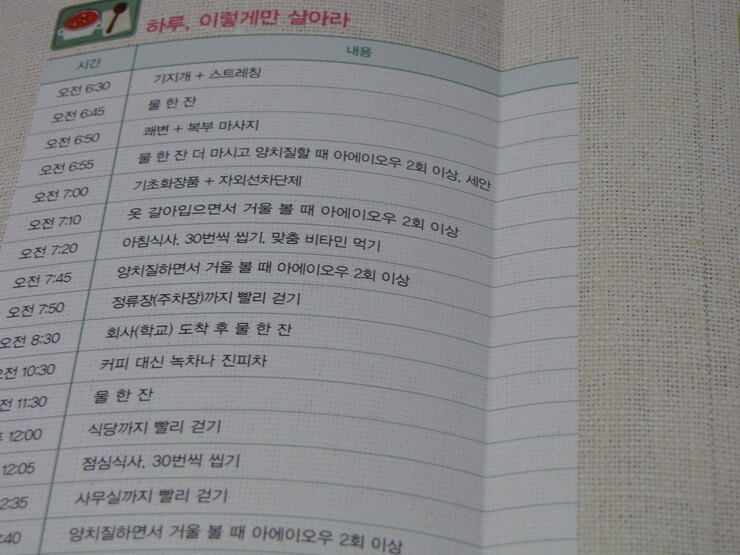 하루, 이렇게만 살아라
시간 내용
오전 6:30 기지개 + 스트레칭
오전 6:45 물 한 잔
오전 6:50 쾌변 + 복부 마사지
오전 6:55 물 한 잔 더 마시고 양치질할 때 아에이오우 2회 이상, 세안
오전 7:00 기초화장품 + 자외선차단제
오전 7:10 옷 갈아입으면서 거울 볼 때 아에이오우 2회 이상
오전 7:20 아침식사, 30번씩 씹기, 맞춤 비타민 먹기
오전 7:45 양치질하면서 거울 볼 때 아에이오우 2회 이상
오전 7:50 정류장(주차장)까지 빨리 걷기
오전 8:30 회사(학교) 도착 후 물 한 잔
오전 10:30 커피 대신 녹차나 진피차
전 11:30 물 한 잔
12:00 식당까지 빨리 걷기
12:05 점심식사, 30번씩 씹기
2:35 사무실까지 빨리 걷기
:40 양치질하면서 거울 볼 때 아에이오우 2회 이상